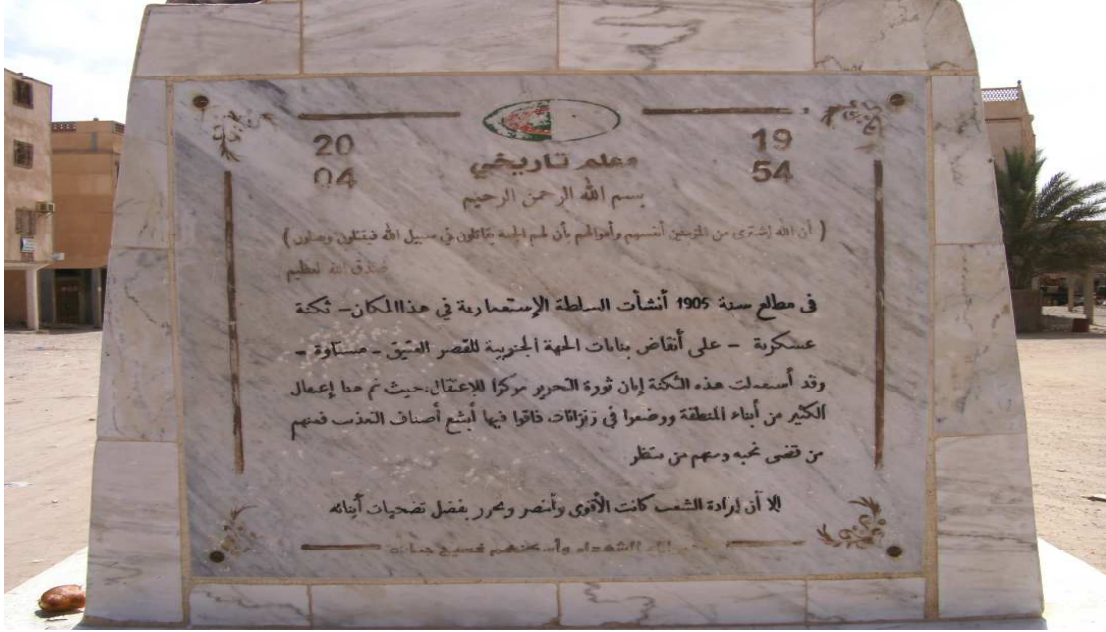 19 54
20 04
معلم تاريخي
بسم الله الرحمن الرحيم
( أن الله إشترى من المؤمنين أنفسهم وأموالهم بأن لهم الجنة يقاتلون في سبيل الله فيقتلون ويقتلون )
صدق الله لعظيم
في مطالع سنة 1905 أنشأت السلطة الإستعمارية في هذا المكان - ثكنة
عسكرية - على أنقاض بنايات الجهة الجنوبية للقصر العتيق - مستاوة -
وقد أستعملت هذه الثكنة إبان ثورة التحرير مركزا للإعتقال، حيث تم هنا إعتقال
الكثير من أبناء المنطقة ووضعوا في زنزانات، ذاقوا فيها أبشع أصناف التعذيب فمنهم
من قضى نحبه ومنهم من ينتظر
إلا أن إرادة الشعب كانت الأقوى وأنتصر وتحرر بفضل تضحيات أبنائه
الله الشهداء وأسكنهم فسيح جناته